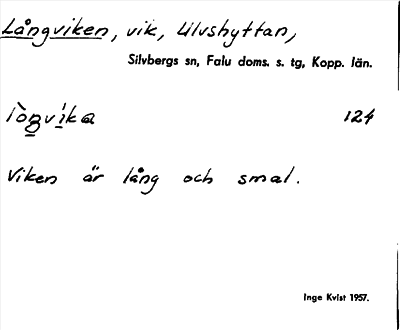 Långviken, vik, Ulvshyttan,
Silvbergs sn, Falu doms. s. tg, Kopp. län.
124
Viken är lång och smal.
Inge Kvist 1957.